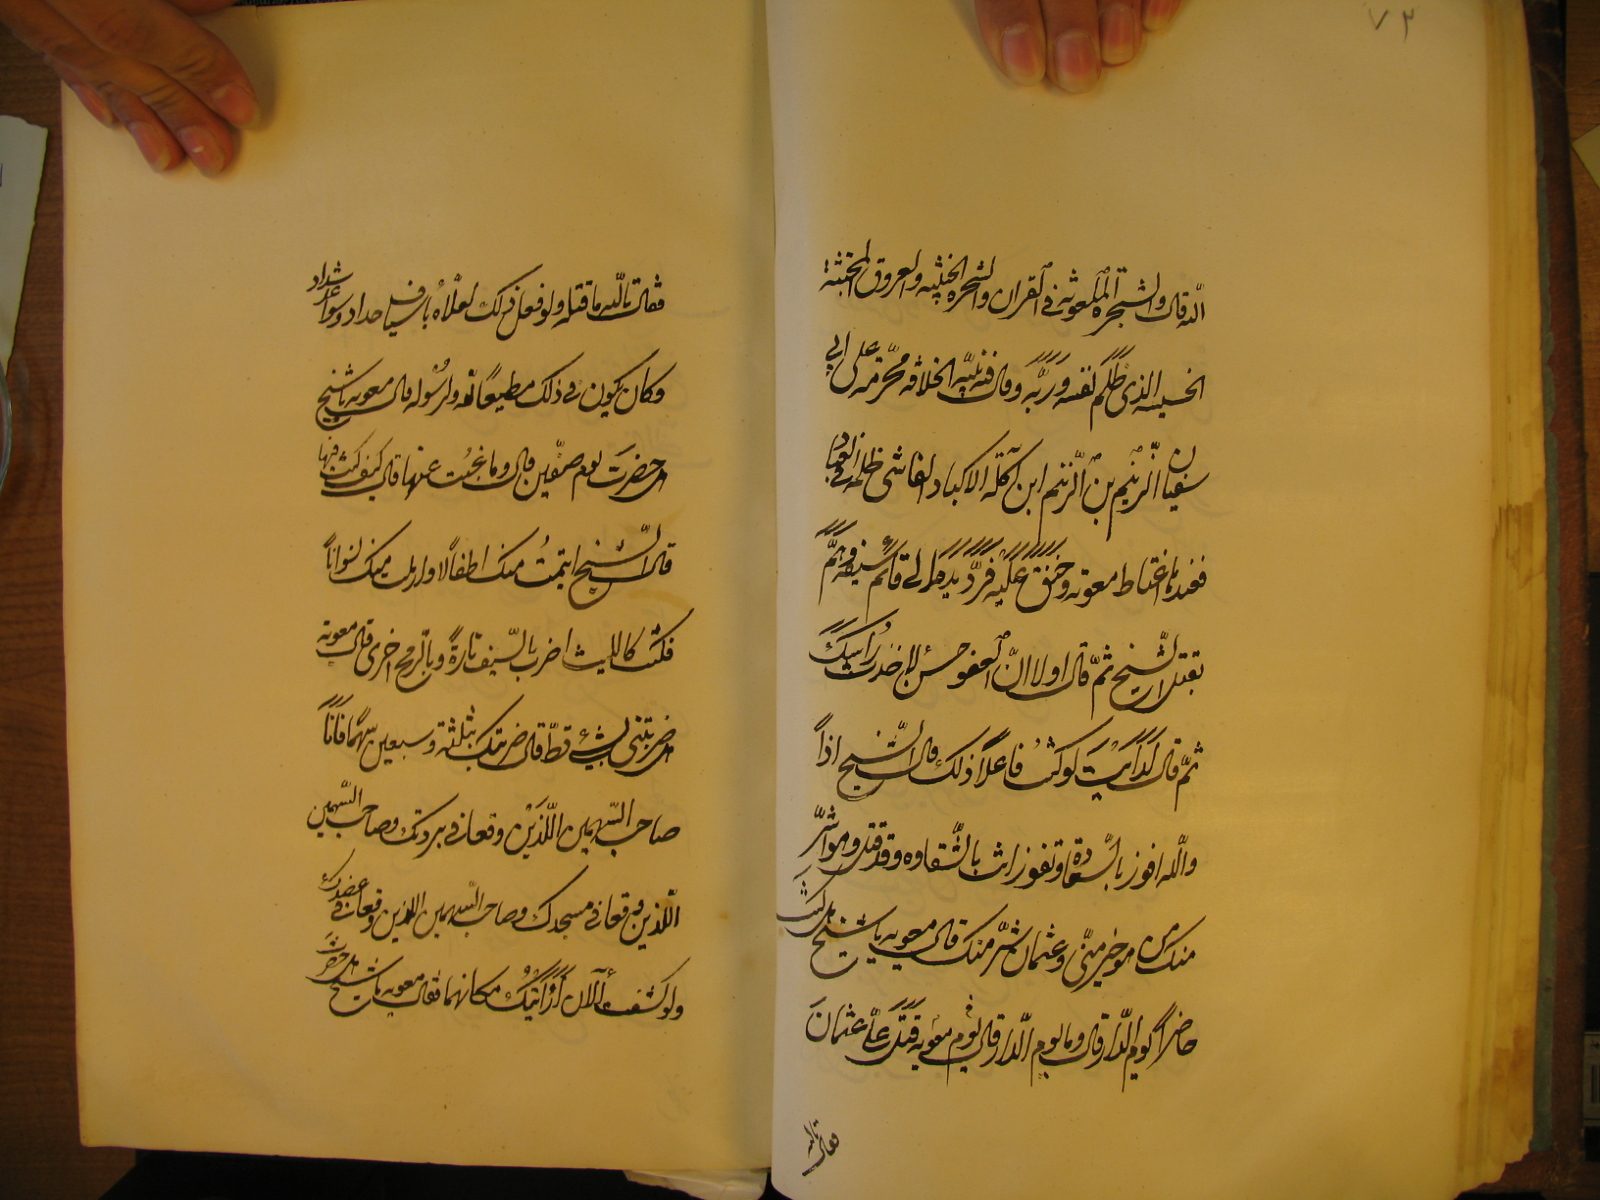 ٧٣
الله قال والشجرة الملعونة في القران والشجرة الخبيثة والعروق المجتثة
الخسيسة الذي ظلم نفسه وربه وقال فيه نبيه الخلافة محرمة على ابي
سفيان الزنيم بن الزنيم ابن اكلة الاكباد الفاشي ظلمه في العباد
فعندها اغتاظ معوية وحنق عليه فرد يده الى قائم سيفه وهم
بقتل الشيخ ثم قال لولا ان العفو حسن لاخذت راسك
ثم قال له ارايت لو كنت فاعلا ذلك قال الشيخ اذا
والله افوز بالسعادة وتفوز انت بالشقاوه وقد قتل من هو اشر
منك من هو خير مني وعثمان شر منك قال معوية يا شيخ هل كنت
حاضرا يوم الدار قال وما يوم الدار قال معوية يوم قتل علي عثمان
فقال تالله
فقال تالله ما قتله ولو فعل ذلك لعلاه باسياف حداد وسواعد شداد
وكان يكون في ذلك مطيعا لله ولرسوله قال معوية يا شيخ
هل حضرت يوم صفين قال وما غبت عنها قال كيف كنت فيها
قال الشيخ ايتمت منك اطفالا وارملت منك نسوانا
فكنت كالليث اضرب بالسيف تارة وبالرمح اخرى قال معوية
هل ضربتني بشيء قط قال ضربتك بثلثة وسبعين سهما فانا
صاحب السهمين اللذين وقعا في بردتك وصاحب السهمين
اللذين وقعا في مسجدك وصاحب السهمين اللذين وقعا في عضدك
ولو كشفت الان لاريتك مكانهما فقال معوية يا شيخ هل حضرت